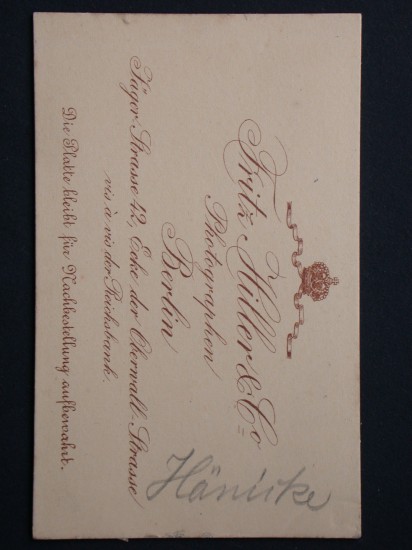 Fritz Hiller & Co
Photographen
Berlin
Jäger Strasse 42, Ecke der Oberwall-Strasse
vis à vis der Reichsbank.
Die Platte bleibt für Nachbestellung aufbewahrt.
Hänicke